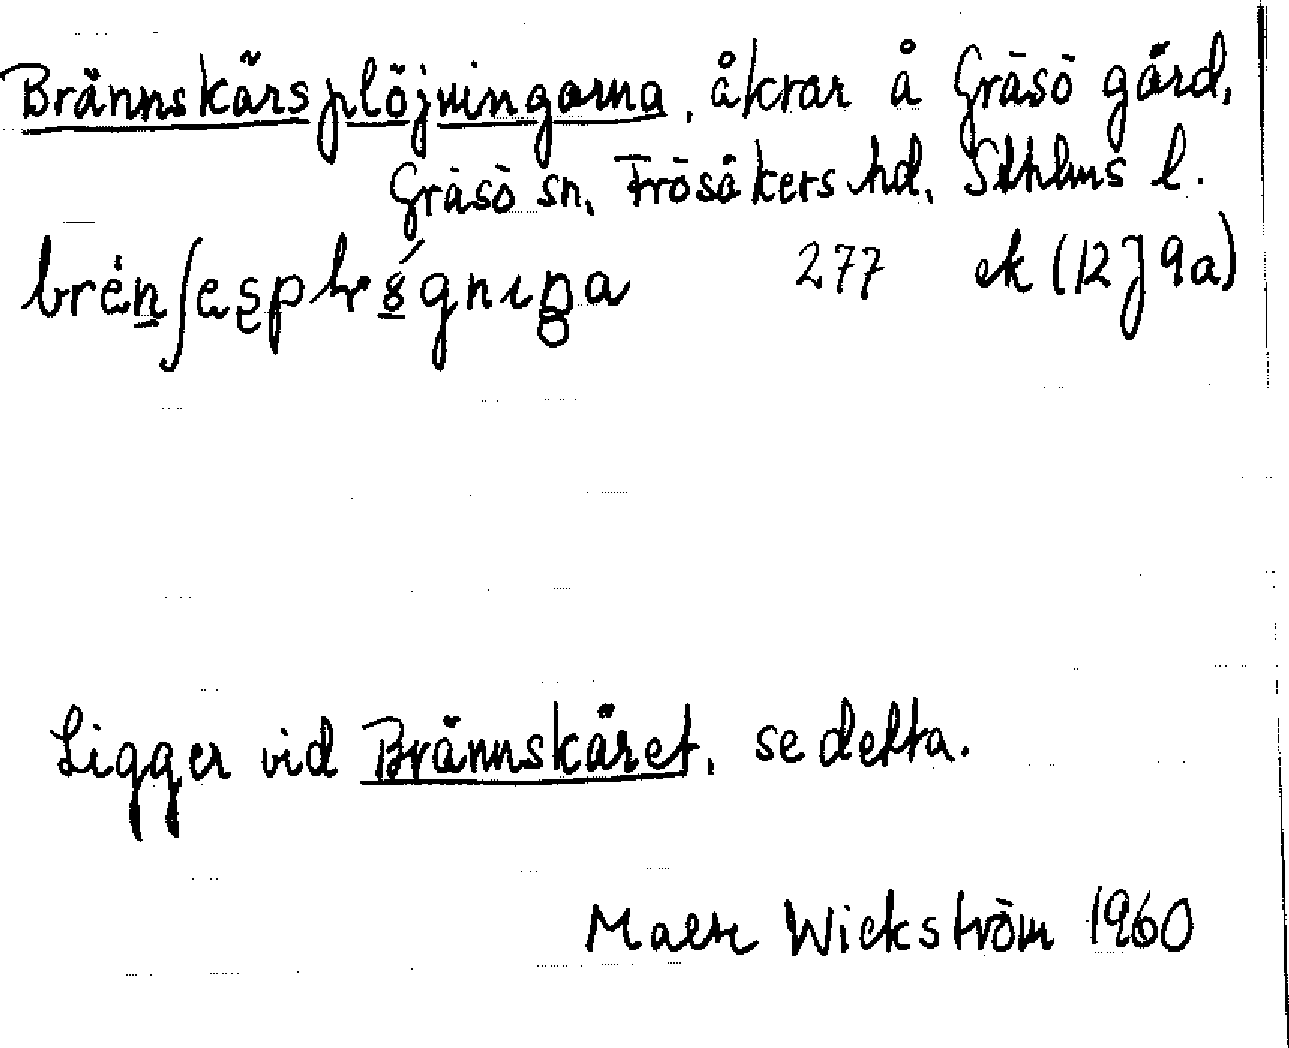 Brännskärsplöjningarna, åkrar å Gräsö gård,
Gräsö sn, Frösåkers hd, Sthlms l.
277 ek (12J9a)
Ligger vid Brännskäret, se detta.
Wickström 1960